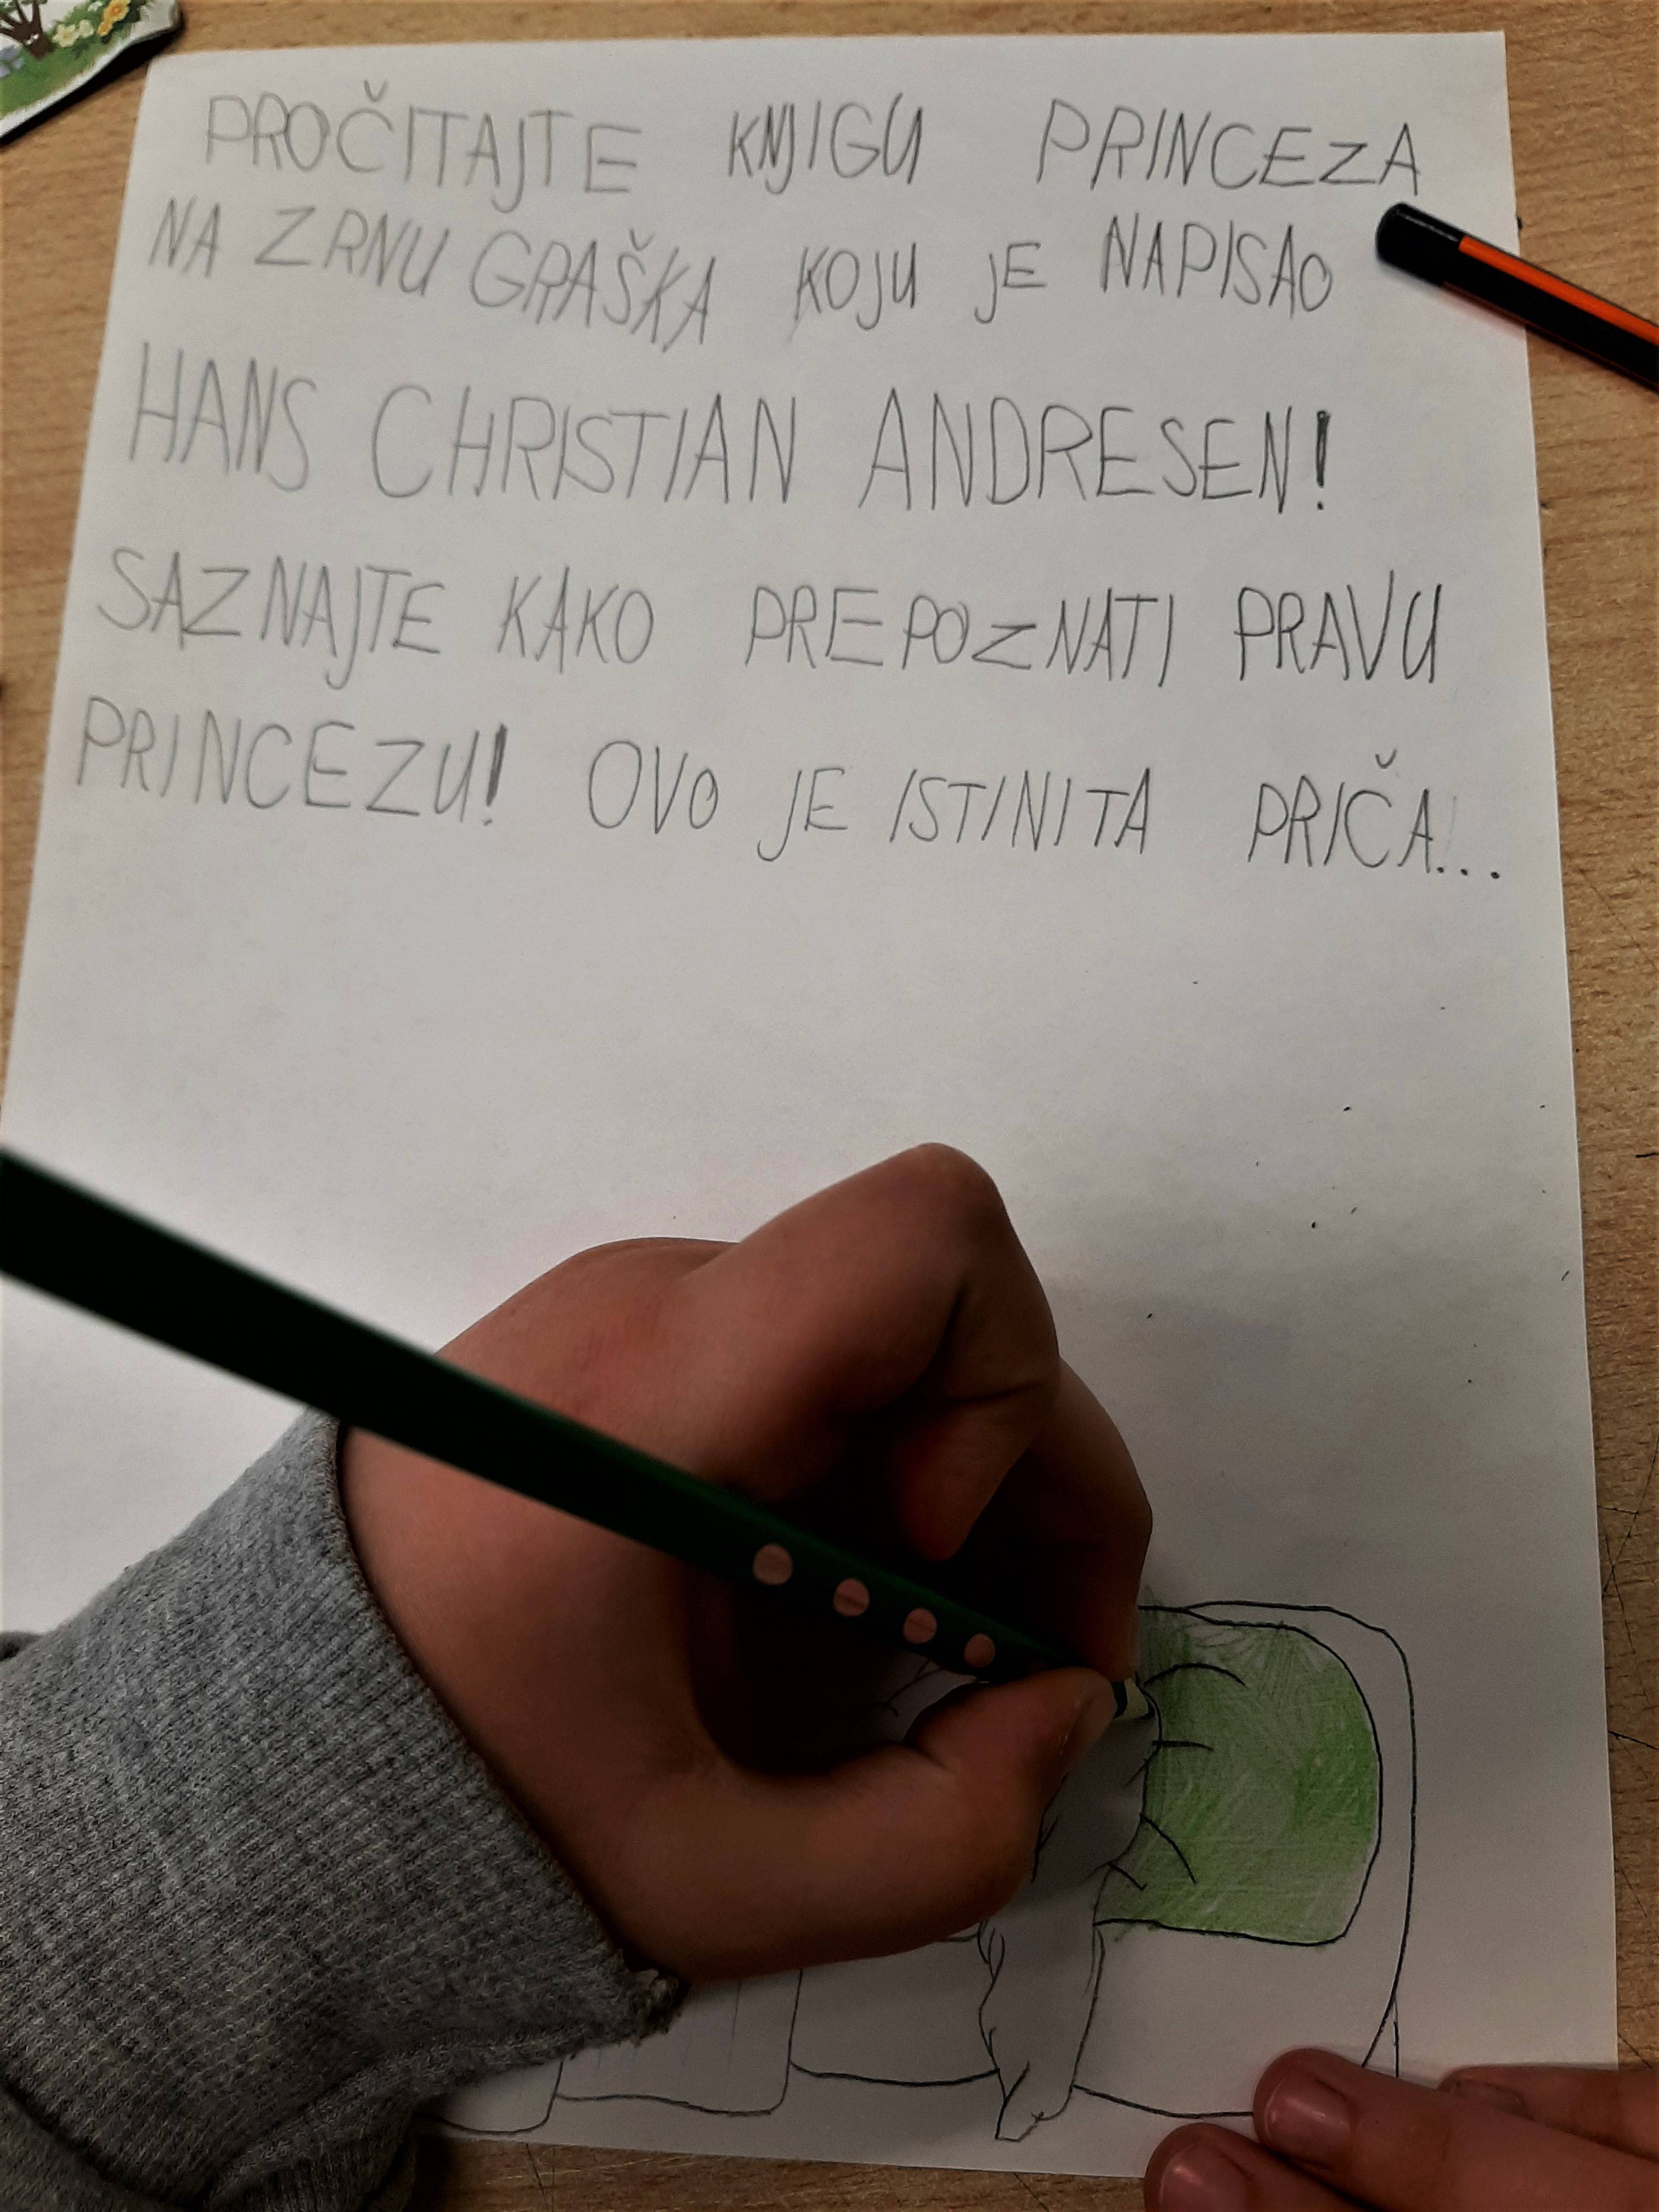 PROČITAJTE KNJIGU PRINCEZA
NA ZRNU GRAŠKA KOJU JE NAPISAO
HANS CHRISTIAN ANDRESEN!
SAZNAJTE KAKO PREPOZNATI PRAVU
PRINCEZU! OVO JE ISTINITA PRIČA...